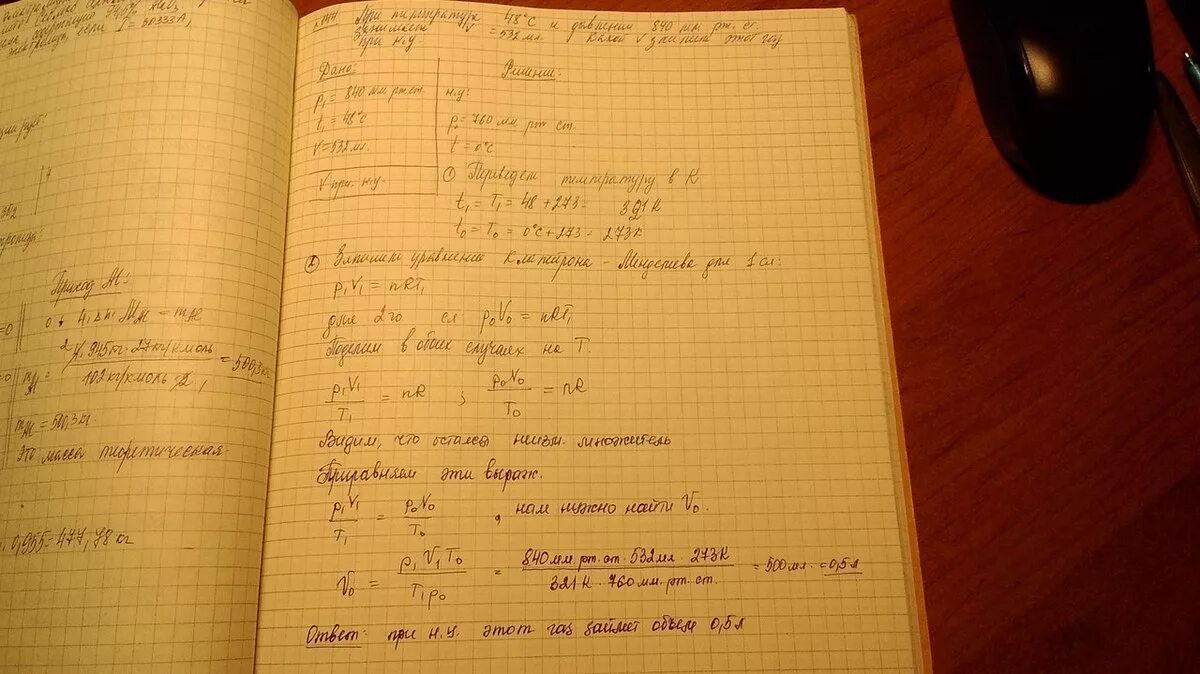 содержащую 94,0%
электролизер, если I = 30333 А,
0 + 4,Δh M_Al = m_Al
Приход Al:
2 · 945кг · 27кг/кмоль
102кг/кмоль · 2
= 500,3кг
m_Al = 500,3кг.
Это масса теоретическая.
0,955 = 477,78 кг
При температуре 48°C и давлении 840 мм рт. ст.
V = 532 мл. Какой V займет этот газ
при н.у
Дано:
p₁ = 840 мм рт.ст.
t₁ = 48°C
V = 532 мл.
V при. н.у.
Решение:
н.у:
p = 760 мм. рт ст.
t = 0°C
① Переведем температуру в К
t₁ = T₁ = 48 + 273 = 321 К
t₀ = T₀ = 0°C + 273 = 273К
② Запишем уравнение Клапейрона - Менделеева для 1 сл:
p₁V₁ = nRT₁
для 2го сл: p₀V₀ = nRT₁
Поделим в обоих случаях на T.
p₁V₁ / T₁ = nR ; p₀V₀ / T₀ = nR
Видим, что остался неизм. множитель
Приравняем эти выраж.
p₁V₁ / T₁ = p₀V₀ / T₀ , нам нужно найти V₀.
V₀ = p₁V₁T₀ / T₁p₀ = 840мм.рт.ст. 532мл · 273К / 321К · 760мм.рт.ст. = 500мл. = 0,5л
Ответ: при н.у. этот газ займет объем 0,5л